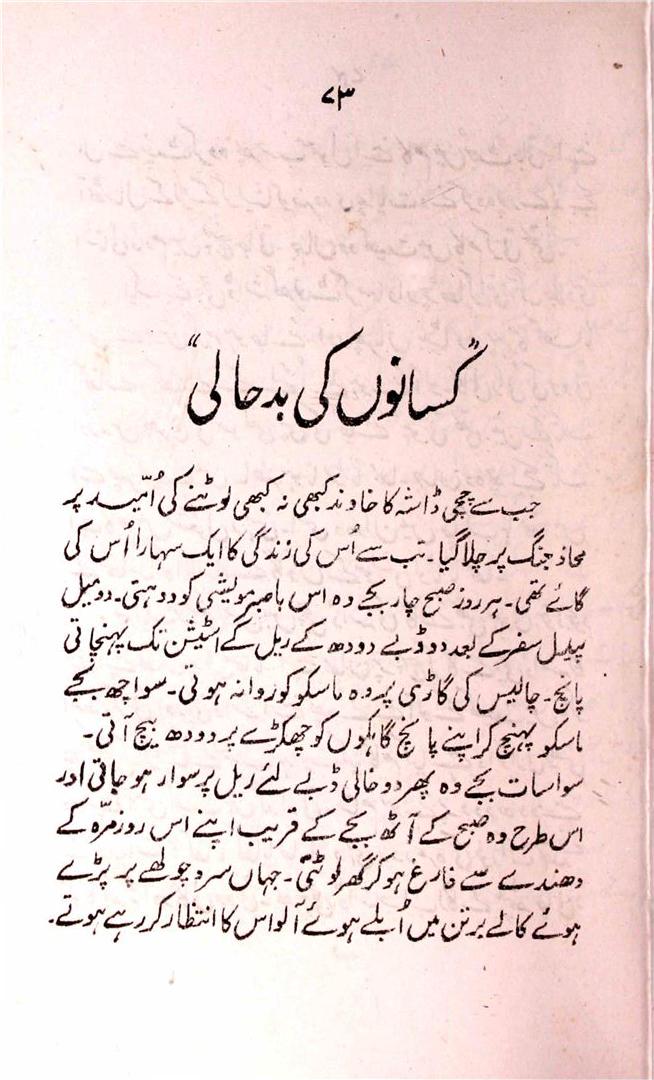 ۷۳
"کسانوں کی بدحالی"
جب سے چچی ڈاشہ کا خاوند کبھی نہ کبھی لوٹنے کی اُمّید پر
محاذ جنگ پر چلا گیا۔ تب سے اُس کی زندگی کا ایک سہارا اُس کی
گائے تھی۔ ہر روز صبح چار بجے وہ اس باصبر مویشی کو دوہتی۔ دو میل
پیدل سفر کے بعد دو ڈبے دودھ کے ریل کے اسٹیشن تک پہنچاتی
پانچ۔ چالیس کی گاڑی پر وہ ماسکو کو روانہ ہوتی۔ سوا چھ بجے
ماسکو پہنچ کر اپنے پانچ گاہکوں کو چھکڑے پر دودھ بیچ آتی۔
سوا سات بجے وہ پھر دو خالی ڈبے لئے ریل پر سوار ہو جاتی اور
اس طرح وہ صبح کے آٹھ بجے کے قریب اپنے اس روزمرّہ کے
دھندے سے فارغ ہو کر گھر لوٹتی۔ جہاں سرد چولھے پر پڑے
ہوئے کالے برتن میں اُبلے ہوئے آلو اس کا انتظار کر رہے ہوتے۔